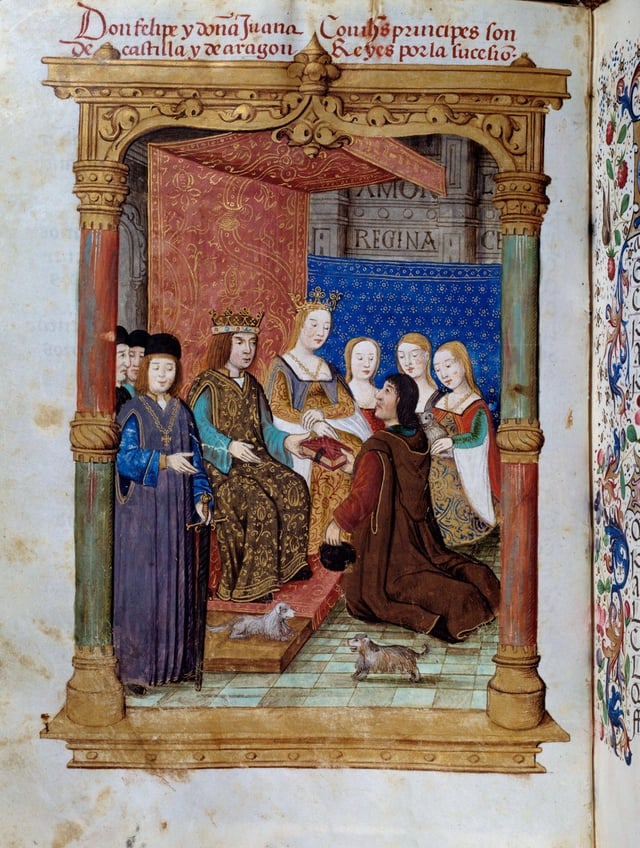 Don felipe y doña Juana Comihs principes son
de castilla y de aragon Reyes por la sucesio:
AMOR
REGINA CE